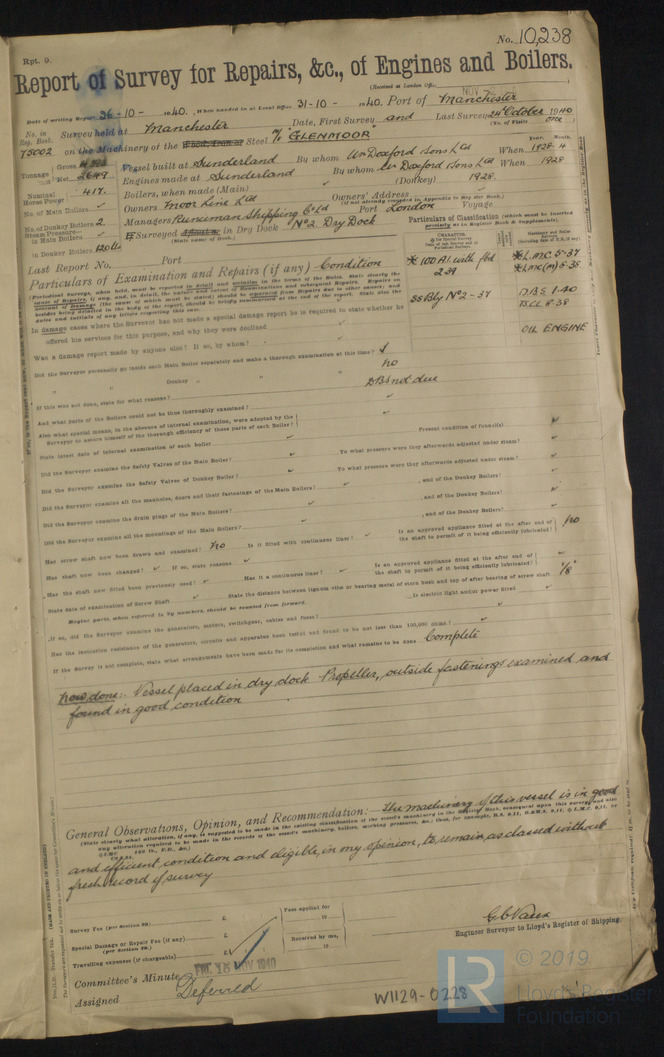 Rpt. 9.
No. 10,238
Report of Survey for Repairs, &c., of Engines and Boilers.
(Received at London Office NOV
Date of writing Report 26-10- 1940. When handed in at Local Office 31-10- 1940. Port of Manchester
No. in Reg. Book. Survey held at Manchester Date, First Survey and Last Survey 24th October 1940
(No. of Visits one)
75002 on the Machinery of the Steel M/V GLENMOOR
Tonnage Gross Vessel built at Sunderland By whom Wm Doxford & Sons Ltd When 1928-4
Net 2649 Engines made at Sunderland By whom Wm Doxford & Sons Ltd When 1928
Nominal Horse Power 417. Boilers, when made (Main) (Donkey) 1928.
No. of Main Boilers Owners Moor Line Ltd Owners' Address
(if not already recorded in Appendix to Register Book.)
No. of Donkey Boilers 2 Managers Runciman Shipping Co Ltd Port London Voyage
Steam Pressure in Main Boilers If Surveyed in Dry Dock No 2. Dry Dock
(State name of Dock.)
in Donkey Boilers 120 lb
Particulars of Classification (which must be inserted precisely as in Register Book & Supplements).
100 A1. with fbd 2.39
SS Bly No 2-37
LMC 5-37
DBS 1.40
TSCL 8.38
OIL ENGINE
Last Report No. Port
Particulars of Examination and Repairs (if any) Condition
In damage cases where the Surveyor has not made a special damage report he is required to state whether he
offered his services for this purpose, and why they were declined
Was a damage report made by anyone else? If so, by whom?
Did the Surveyor personally go inside each Main Boiler separately and make a thorough examination at this time?
" " Donkey " " " no
If this was not done, state for what reasons? DBs not due
And what parts of the Boilers could not be thoroughly examined?
Also what special means, in the absence of internal examination, were adopted by the
Surveyor to assure himself of the thorough efficiency of those parts of each Boiler?
State latest date of internal examination of each boiler Present condition of funnel(s)
Did the Surveyor examine the Safety Valves of the Main Boiler? To what pressure were they afterwards adjusted under steam?
Did the Surveyor examine the Safety Valves of Donkey Boiler? To what pressure were they afterwards adjusted under steam?
Did the Surveyor examine all the manholes, doors and their fastenings of the Main Boilers? , and of the Donkey Boilers?
Did the Surveyor examine the drain plugs of the Main Boilers? , and of the Donkey Boilers?
Did the Surveyor examine all the mountings of the Main Boilers? , and of the Donkey Boilers?
Has screw shaft now been drawn and examined? no Is it fitted with continuous liner? Is an approved appliance fitted at the after end of the shaft to permit of it being efficiently lubricated? no
Has shaft now been changed? If so, state reasons
Has the shaft now fitted been previously used? Has it a continuous liner? Is an approved appliance fitted at the after end of the shaft to permit of it being efficiently lubricated?
State date of examination of Screw Shaft State the distance between lignum vitæ or bearing metal of stern bush and top of after bearing of screw shaft 1/8"
Engine parts, when referred to by numbers, should be counted from forward. Is electric light and/or power fitted
If so, did the Surveyor examine the generators, motors, switchgear, cables and fuses?
Has the insulation resistance of the generators, circuits and apparatus been tested and found to be not less than 100,000 ohms?
If the Survey is not complete, state what arrangements have been made for its completion and what remains to be done Complete
Now done:- Vessel placed in dry dock Propeller, outside fastenings examined and
found in good condition
General Observations, Opinion, and Recommendation:- The machinery of this vessel is in good
and efficient condition and eligible, in my opinion, to remain as classed without
fresh record of survey
Survey Fee (per Section 29) £
Special Damage or Repair Fee (if any) £
(per Section 29.)
Travelling expenses (if chargeable) £
Fees applied for
19
Received by me,
19
G C Vaux
Engineer Surveyor to Lloyd's Register of Shipping.
Committee's Minute FRI. 15 NOV 1940
Assigned Deferred
W1129-0228
LR
© 2019
Lloyd's Register
Foundation